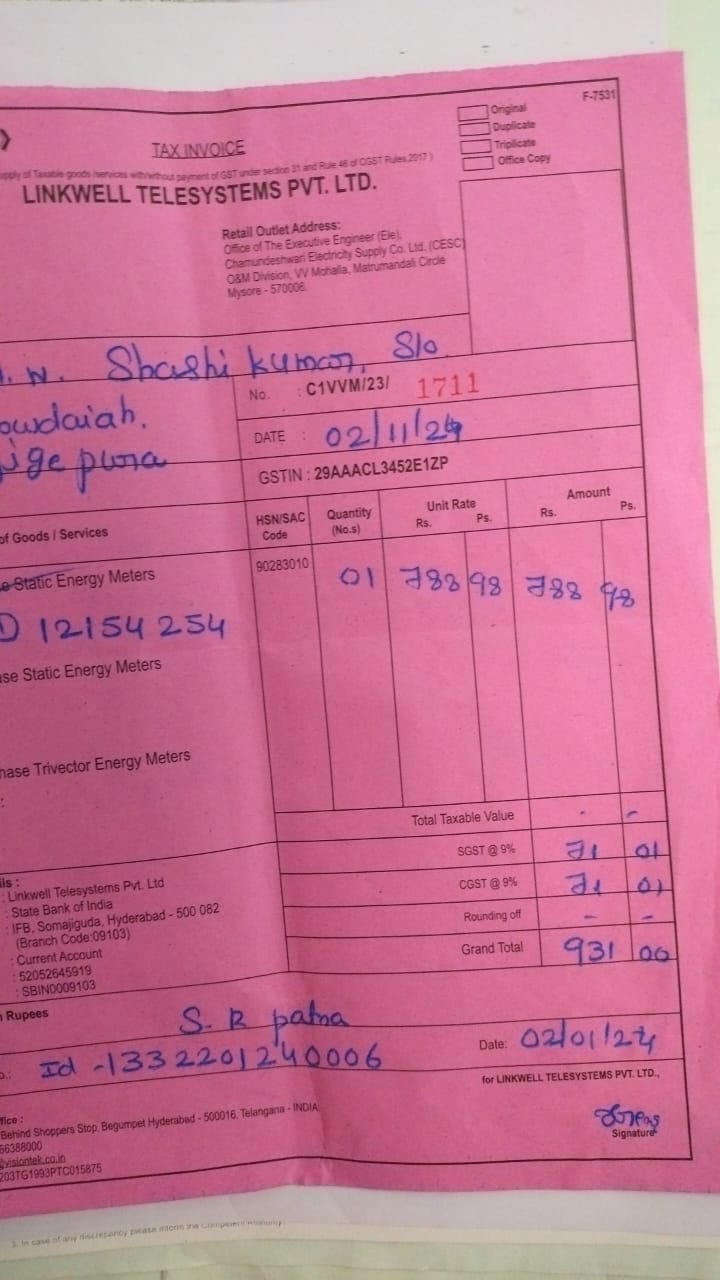 F-7531
Original
Duplicate
Triplicate
Office Copy
TAX INVOICE
of Taxable goods /services with/without payment of GST under section 31 and Rule 46 of CGST Rules,2017 )
LINKWELL TELESYSTEMS PVT. LTD.
Retail Outlet Address:
Office of The Executive Engineer (Ele),
Chamundeshwari Electricity Supply Co. Ltd. (CESC)
O&M Division, VV Mohalla, Matrumandali Circle
Mysore - 570006.
Shashi kumar, S/o
No. : C1VVM/23/ 1711
DATE : 02/11/24
GSTIN : 29AAACL3452E1ZP
of Goods / Services HSN/SAC Code Quantity (No.s) Unit Rate Rs. Ps. Amount Rs. Ps.
Static Energy Meters 90283010 01 788 98 788 98
12154254
Static Energy Meters
Trivector Energy Meters
:
Total Taxable Value - -
SGST @ 9% 71 01
CGST @ 9% 71 01
Rounding off - -
Grand Total 931 00
: Linkwell Telesystems Pvt. Ltd
: State Bank of India
: IFB, Somajiguda, Hyderabad - 500 082
(Branch Code:09103)
: Current Account
: 52052645919
: SBIN0009103
Rupees
S. R patna
Id -1332201240006
Date: 02/01/24
for LINKWELL TELESYSTEMS PVT. LTD.,
Signature
Behind Shoppers Stop, Begumpet Hyderabad - 500016, Telangana - INDIA
66388000
visiontek.co.in
203TG1993PTC015875
3. In case of any discrepancy please inform the Competent